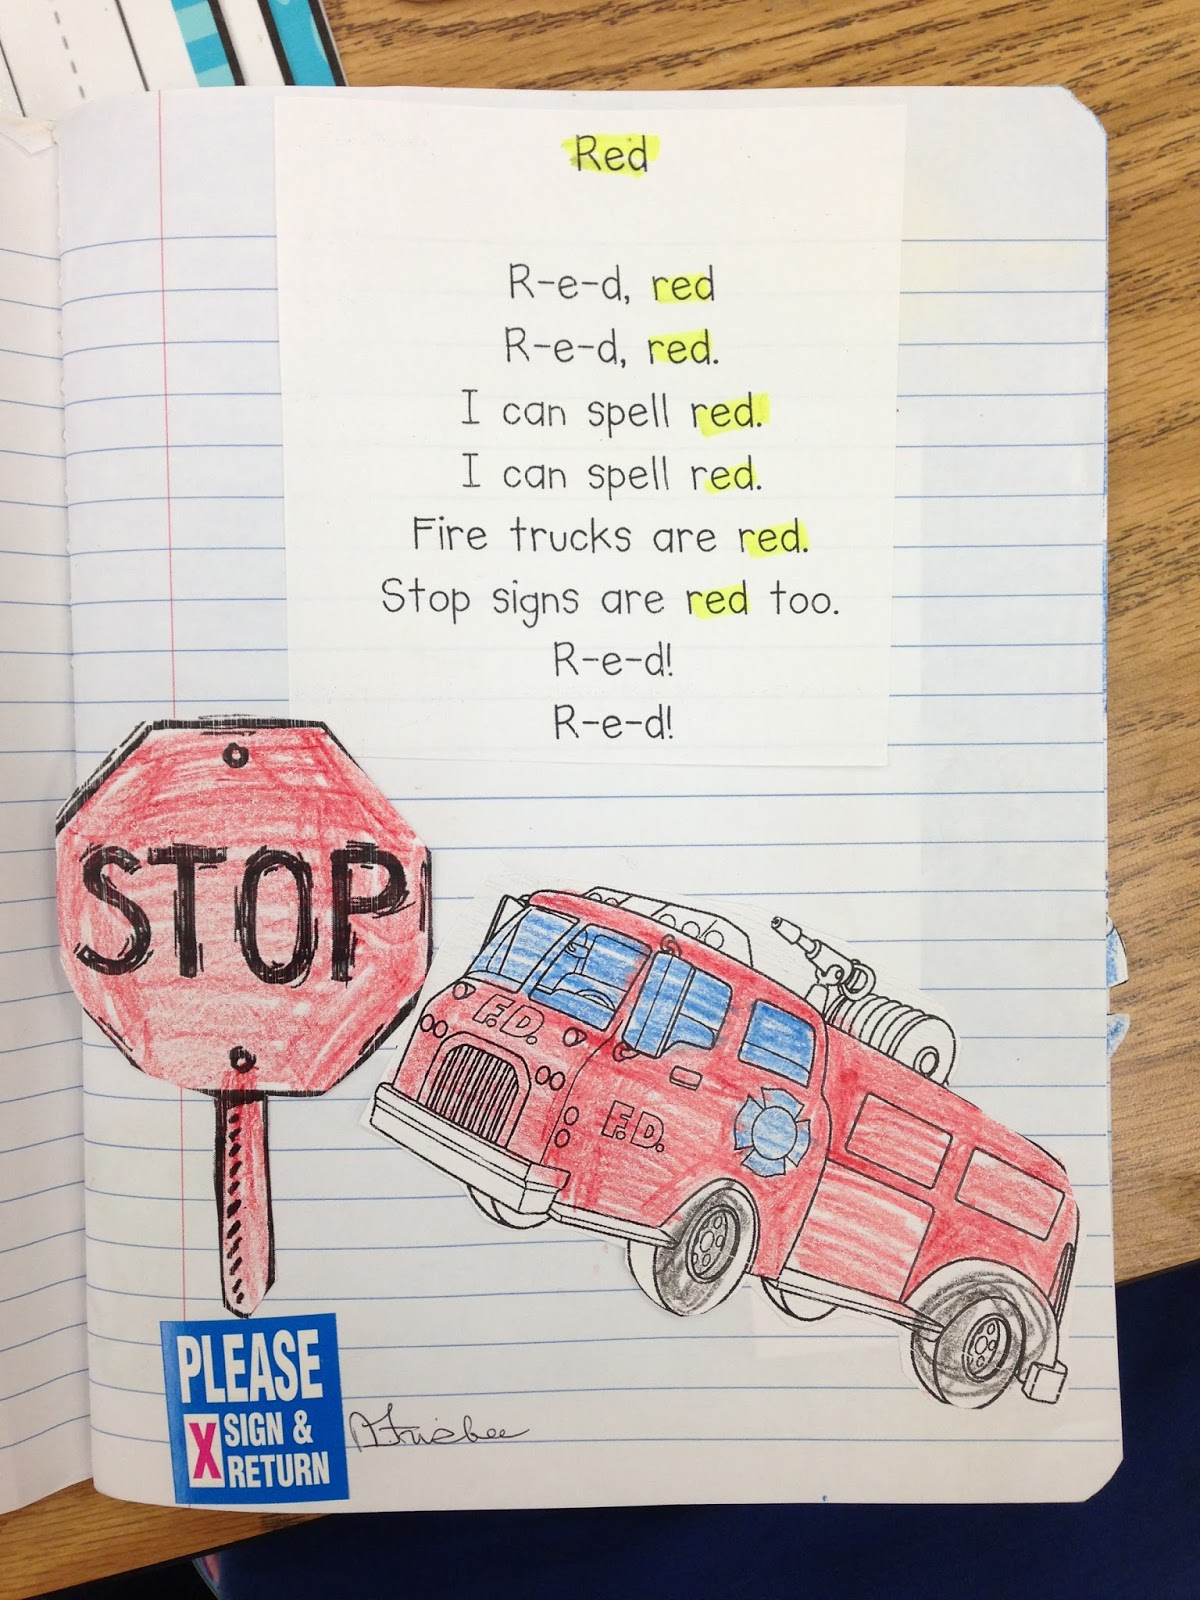 Red
R-e-d, red
R-e-d, red.
I can spell red.
I can spell red.
Fire trucks are red.
Stop signs are red too.
R-e-d!
R-e-d!
STOP
F.D.
F.D.
PLEASE
X SIGN &
RETURN